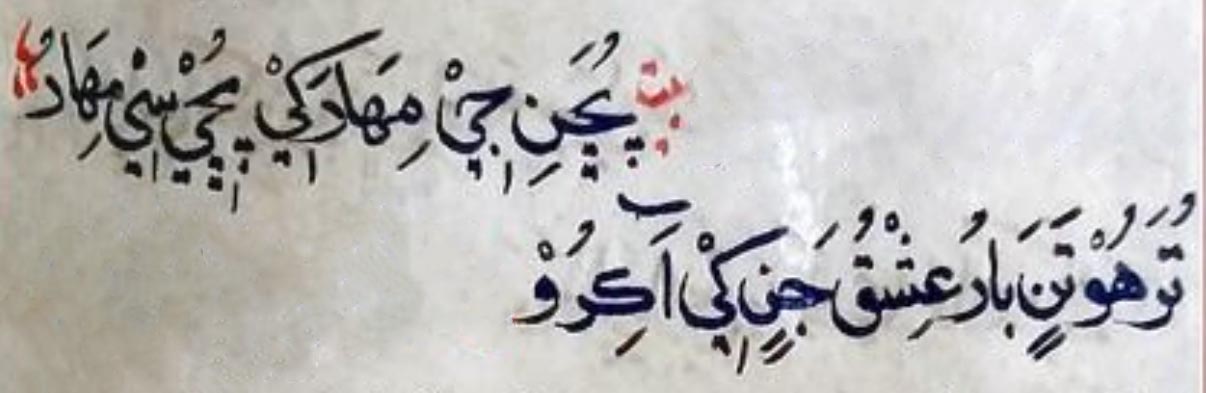 بيت پُڇَنِ جٖيْ مِهَارَ کٖيْ پُڇٖيْ سٖيْ مِهَارُ
تُرَهُوْ تَنٍ بَارُ عِشْقُ جَنٍ کٖيْ آکِرُوْ